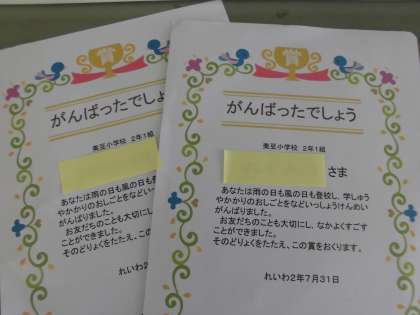 賞
がんばったでしょう
美豆小学校 2年1組
あなたは雨の日も風の日も
やかかりのおしごとをなどい
がんばりました。
お友だちのことも大切に
ことができました。
そのどりょくをたたえ、この
れいわ2年
賞
がんばったでしょう
美豆小学校 2年1組
さま
あなたは雨の日も風の日も登校し、学しゅう
やかかりのおしごとをなどいっしょうけんめい
がんばりました。
お友だちのことも大切にし、なかよくすごす
ことができました。
そのどりょくをたたえ、この賞をおくります。
れいわ2年7月31日